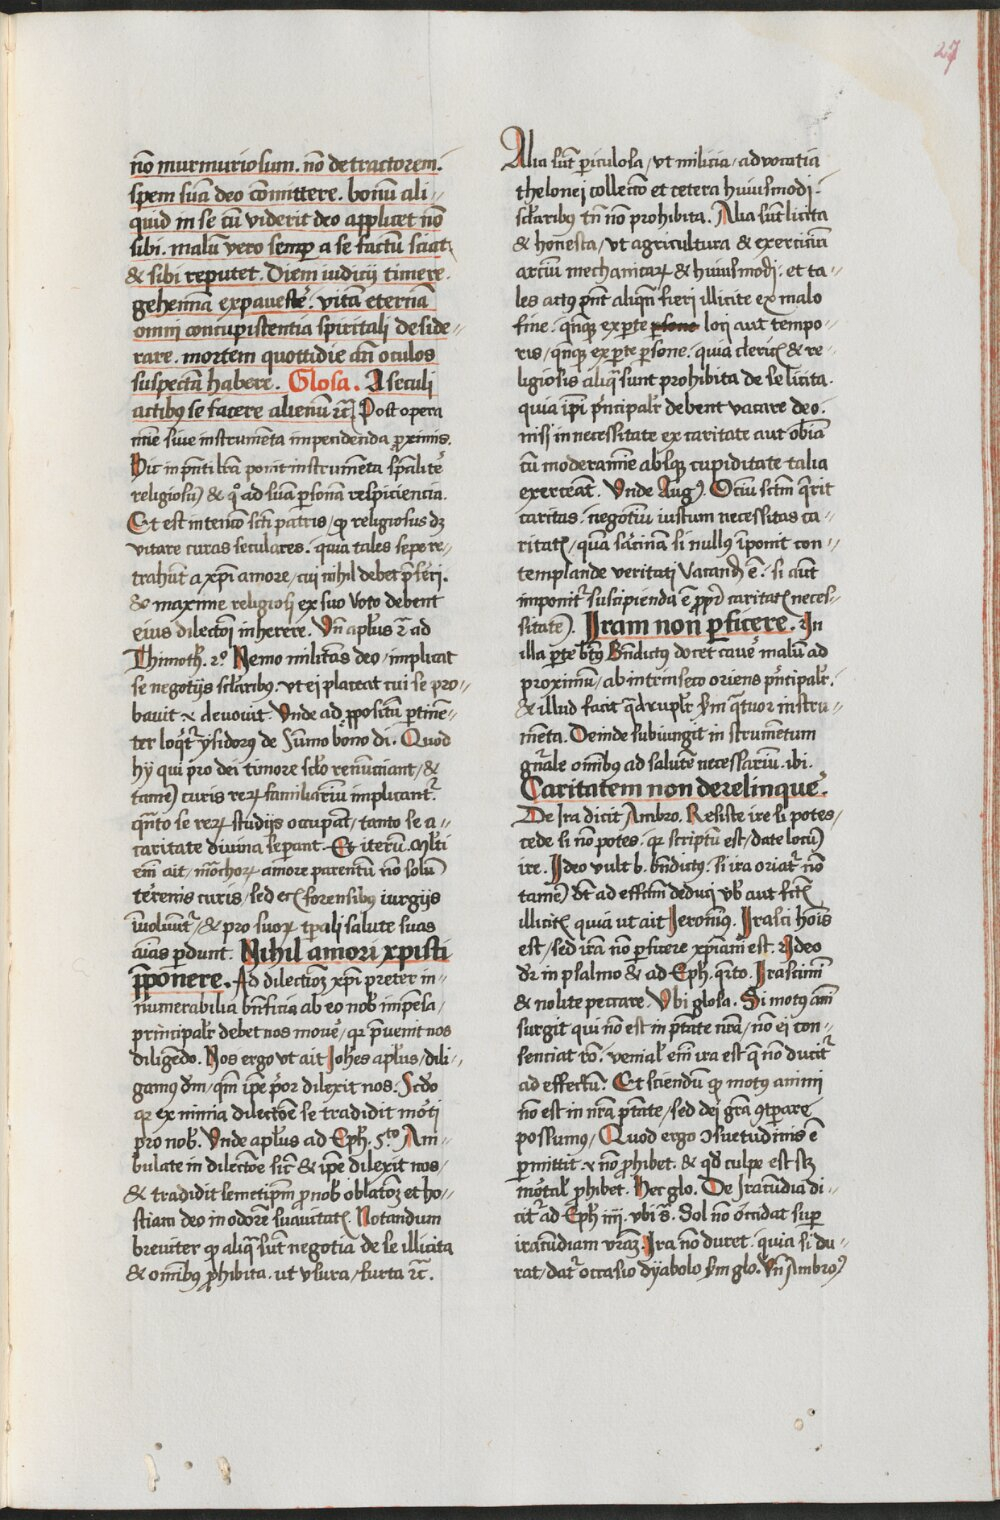 27
nō murmuriosum. nō detractorem.
spem suā deo cōmittere. bonū ali-
quid in se cū viderit deo applicet nō
sibi. malū vero semꝑ a se factū sciat
& sibi reputet. Diem iudicij timere.
gehennā expavescē. vitā eternā
omni concupiscentia spiritali deside-
rare. mortem quottidie añ oculos
suspectā habere. Glosa. A seculi
actibꝰ se facere alienū rc̄ Post opera
mīe siue instrumēta impendenda ꝓximis.
Hic in pn̄ti lr̄a ponit instrumēta spāliter
religiosū & qͦ ad suā ꝑsonā respiciencia.
Et est intencō scti patris / ꝙ religiosus dꝫ
vitare curas seculares. quia tales sepe re-
trahūt a xp̄i amore / cui nihil debet p̄ferri.
& maxime religiosi ex suo voto debent
eius dilectoī inherere. Vn̄ apl̄us 2ͣ ad
Thimoth. 2ͦ Nemo militās deo / implicat
se negotijs sclaribꝰ. ut ei placeat cui se pro-
bauit & devouit. Vnde ad ꝓpositū ꝑtinē-
ter loqͥtͬ ysidorꝰ de sūmo bono di. Quod
hij qui pro dei timore sclo renūnciant / &
tamē curis reꝝ familiariū implicantͬ.
qn̄to se reꝝ studijs occupāt / tanto se a
caritate diuina seꝑant. Et iterū. Ml̄ti
em̄ ait / mōchoꝝ amore parentū nō solū
terrenis curis / sed eciā forensibꝰ iurgijs
īvoluūtͬ / & pro suoꝝ tꝑali salute suas
aīas ꝑdunt. Nihil amori xpisti
p̄ponere. Ad dilectioꝫ xp̄i preter in-
numerabilia bn̄ficia ab eo nobꝭ īmpēsa /
principalr̄ debet nos mouē / qꝛ p̄uenit nos
diligēdo. Nos ergo ut ait Joh̄es apl̄us / dili-
gamꝰ dm̄ / qm̄ ip̄e p̄or dilexit nos. Scdo
qꝛ ex nimia dilectōe se tradidit morti
pro nobꝭ. Vnde apl̄us ad Eph. 5ͭͦ Am-
bulate in dilectōe sic̄ & ip̄e dilexit nos /
& tradidit semetip̄m ꝓ nobꝭ oblatōꝫ et ho-
stiam deo in odorē suauitatꝭ. Notandum
breuiter ꝙ aliqͣ sūt negotia de se illicita
& omībꝰ ꝓhibita. ut vsura / furta rc̄.
Alia sūt ꝑiculosa / ut milicia / advocatia
thelonej collectō et cetera huiusmodi.
sclaribꝰ tn̄ nō prohibita. Alia sūt licita
& honesta / ut agricultura & exercicia
arciū mechanicaꝝ & huiusmodj. et ta-
les actꝰ pn̄t aliqn̄ fieri illicite ex malo
fine. qn̄qꝫ ex ꝑte loci aut tempo-
ris / qn̄qꝫ ex ꝑte ꝑsone. quia clericꝭ & re-
ligiosis aliqͣ sunt prohibita de se licita.
quia ip̄i p̄ncipalr̄ debent vacare deo.
nisi in necessitate ex caritate aut obīa
cū moderamīe absqꝫ cupiditate talia
exerceāt. Vnde Augꝰ. Ociū sctm̄ q̄rit
caritas. negotiū iustum necessitas ca-
ritatꝭ / quā sarcinam si nullꝰ īponit con-
templande veritati vacandū ē. si aūt
imponitͬ suscipienda ē ꝓpt̄ caritatꝭ neces-
sitatē. Iram non ꝑficere. In
illa ꝑte bt̄ꝰ Bn̄dictꝰ docet cauē malū ad
proximū / ab intrinseco oriens p̄ncipalr̄.
& illud facit qͣdruplr̄ sm̄ qͣtuor instru-
mēta. Deinde subiungit instrumentum
gn̄ale omībꝰ ad salutē necessariū. ibi.
Caritatem non derelinquē.
De Ira dicit Ambro. Resiste ire si potes /
cede si nō potes. qꝛ scriptū est / date locū
ire. Ideo vult b. bn̄dictꝰ. si ira oriatͬ nō
tamē dꝫ ad effctm̄ deduci vꝭbo aut fctꝭ
illicitꝭ quia ut ait Jeronimꝰ. Irasci hoīs
est / sed irā nō ꝑficere xp̄iani est. Ideo
dr̄ in psalmo & ad Eph. qͬto. Irascimī
& nolite peccare. Vbi glosa. Si motꝰ aīmi
surgit qui nō est in ptāte nr̄a / nō ei con-
senciat rō. venial̄ em̄ ira est q̄ nō ducitͬ
ad effectū. Et sciendū ꝙ motꝰ animi
nō est in nr̄a ptāte / sed dei grā ꝯpare
possumꝰ / Quod ergo ↄsuetudinis ē
ꝑmittit & nō ꝓhibet. & qd̄ culpe est sꝫ
mortal̄ ꝓhibet. Hec glo. De Iracūdia di-
citͬ ad Eph̄ iiij. vbi sͣ. Sol nō occidat suꝑ
iracūdiam vrāꝫ. Ira nō duret. quia si du-
rat / datͬ occasio dyabolo sm̄ glo. Vn̄ Ambroꝰ